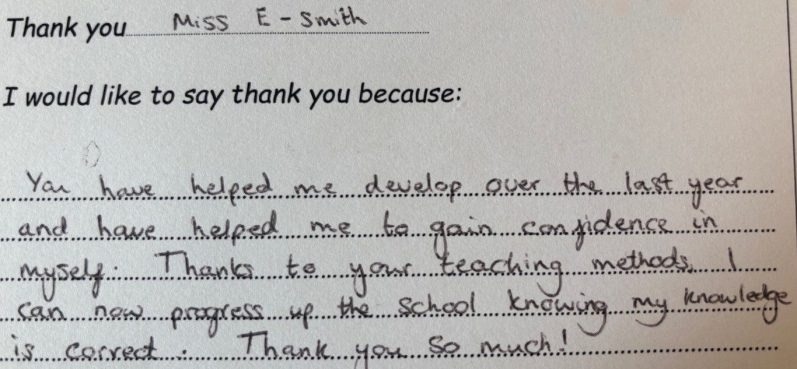 Thank you Miss E - Smith
I would like to say thank you because:
You have helped me develop over the last year
and have helped me to gain confidence in
myself. Thanks to your teaching methods, I
can now progress up the school knowing my knowledge
is correct. Thank you so much!